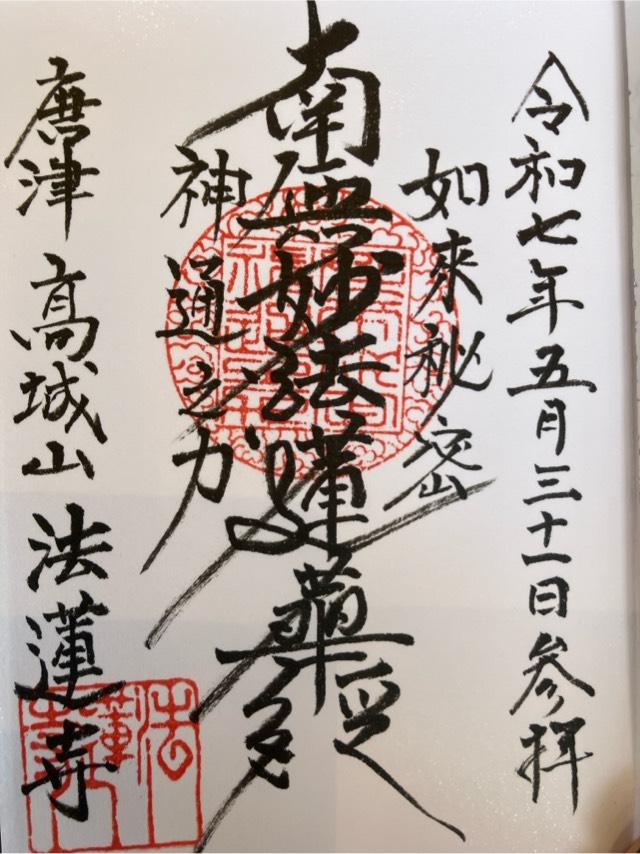 令和七年五月三十一日参拝
如來秘密
南無妙法蓮華経
神通之力
唐津 高城山 法蓮寺
法蓮寺